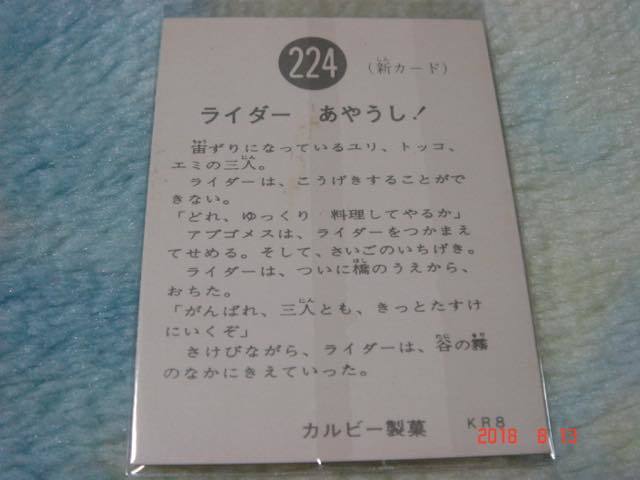 224
(新カード)
ライダー あやうし!
宙ずりになっているユリ、トッコ、
エミの三人。
ライダーは、こうげきすることがで
きない。
「どれ、ゆっくり 料理してやるか」
アブゴメスは、ライダーをつかまえ
てせめる。そして、さいごのいちげき。
ライダーは、ついに橋のうえから、
おちた。
「がんばれ、三人とも、きっとたすけ
にいくぞ」
さけびながら、ライダーは、谷の霧
のなかにきえていった。
カルビー製菓
KR8
2018 8 13